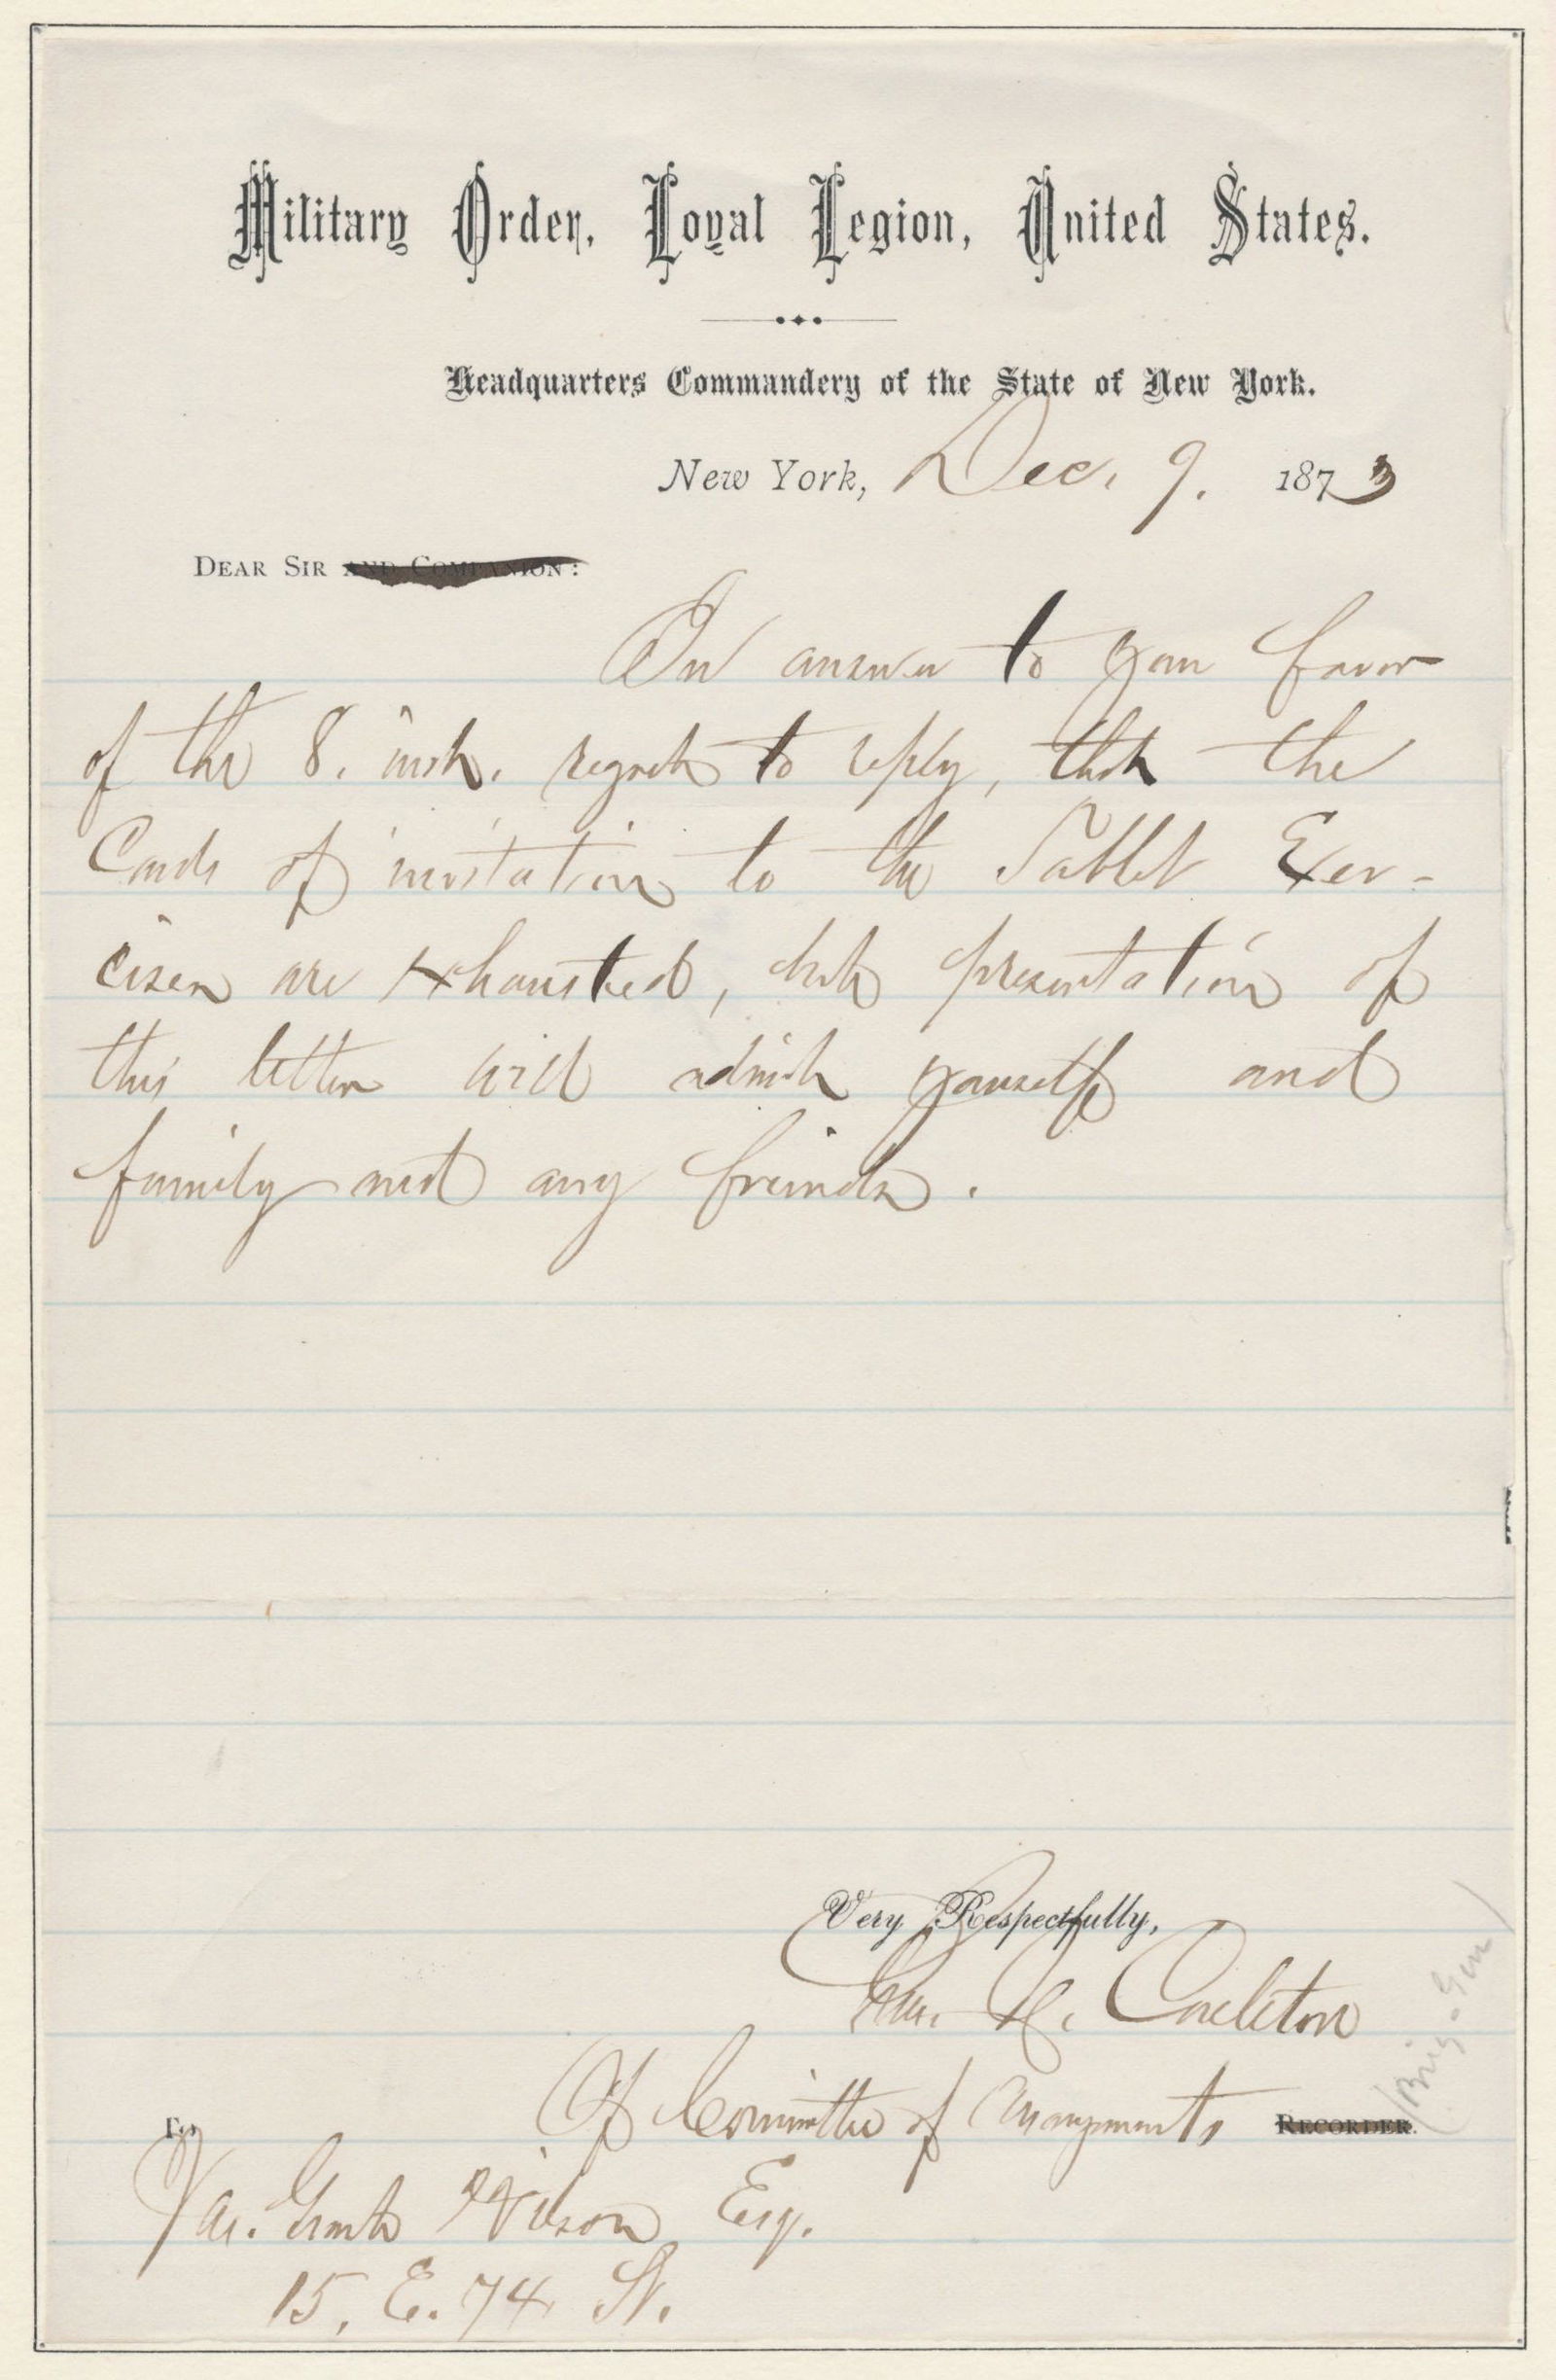 Military Order, Loyal Legion, United States.
Headquarters Commandery of the State of New York.
New York, Dec. 9. 1873
DEAR SIR AND COMPANION:
In answer to your favor
of the 8. inst. regret to reply, that the
Cards of invitation to the Tablet Exer-
cises are exhausted, but presentation of
this letter will admit yourself and
family and any freinds.
Very Respectfully,
C. Carleton
Of Committee of Arrangements RECORDER.
(Brig-Gen)
To
Jas. Grant Wilson Esq.
15, E. 74 St.